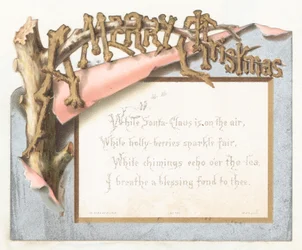 A Merry Christmas
While Santa-Claus is on the air,
White holly-berries sparkle fair,
While chimings echo o'er the lea,
I breathe a blessing fond to thee.